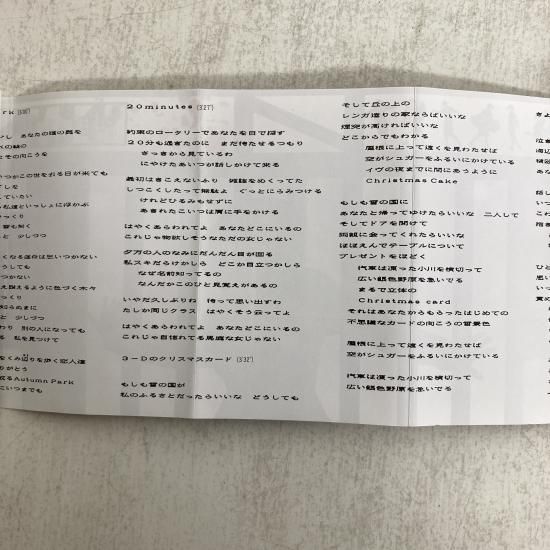 ark (3'30")
あなたの瞳の奥を
その向こうを
いつかこの世を去る日が来ても
していたい
私達といっしょに浮かぶ
っくり
少しづつ
なる理由は思いつかない
うしても
つかない
るように色づく木々
っくり
知らぬまに
と 少しづつ
わり 別の人になっても
る 私を見つけて
をくみ辺りを歩く恋人達
りがとう
Autumn Park
こいつまでも
20minutes (3'27")
約束のロータリーであなたを目で探す
20分も過ぎたのに まだ待たせるつもり
さっきから見ているわ
にやけたあいつが話しかけて来る
最初は聞こえないふり 雑誌をめくってた
しつこくしたって無駄よ ぐっとにらみつける
けれどひるみもせずに
あきれたこいつは肩に手をかける
はやくあらわれてよ あなたどこにいるの
これじゃ物欲しそうなただの女じゃない
夕方の人のなみにだんだん目が回る
私スキだらけかしら どこか目立つかしら
なぜ名前知ってるの
なんだかこのひと見覚えがあるの
いやだ久しぶりね 待って思い出すわ
たしか同じクラス はやくそう云ってよ
はやくあらわれてよ あなたどこにいるの
これじゃ自惚れてる馬鹿な女じゃない
3-Dのクリスマスカード (3'32")
もしも雪の国が
私のふるさとだったらいいな どうしても
そして丘の上の
レンガ造りの家ならばいいな
煙突が高ければいいな
どこからでもわかる
屋根に上って遠くを見わたせば
空がシュガーをふるいにかけている
イヴの夜までに間にあうように
Christmas Cake
もしも雪の国に
あなたと帰ってゆけたらいいな 二人して
そしてドアを開けて
両親に会ってくれたらいいな
ほほえんでテーブルについて
プレゼントをほどく
汽車は凍った小川を横切って
広い銀色野原を急いでる
まるで立体の
Christmas card
それはあなたからもらったはじめての
不思議なカードの向こうの背景色
屋根に上って遠くを見わたせば
空がシュガーをふるいにかけている
汽車は凍った小川を横切って
広い銀色野原を急いでる